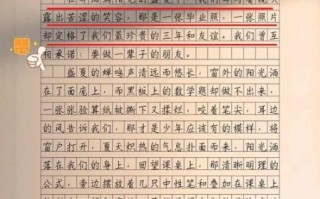 露出苦涩的笑容,那是一张毕业照,一张照片
却定格了我们最珍贵的三年和友谊。我们曾互
相承诺:要做一辈子的朋友。
盛夏的蝉鸣声清远而悠长,窗外的阳光洒
在了面庞上,而黑板上的数学题却做不出来,
一张张验算纸被撕下又揉烂,咬着笔尖,耳边
的风告诉我们,那才是少年应该有的模样,将
窗户打开,夏天炽热的气息扑面而来,阳光洒
落在我们的身上,回望课桌上,那清晰明理的
公式,旁边摆放着几只中性笔和叠加在课桌上